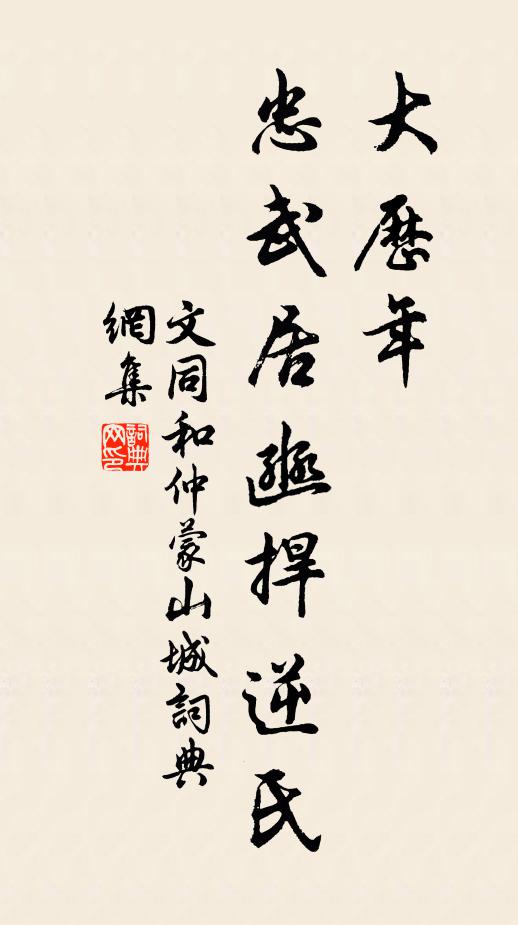 大歷年
忠武居邈捍逆氏
文同和仲蒙山城詞典
網集
詞典
网印